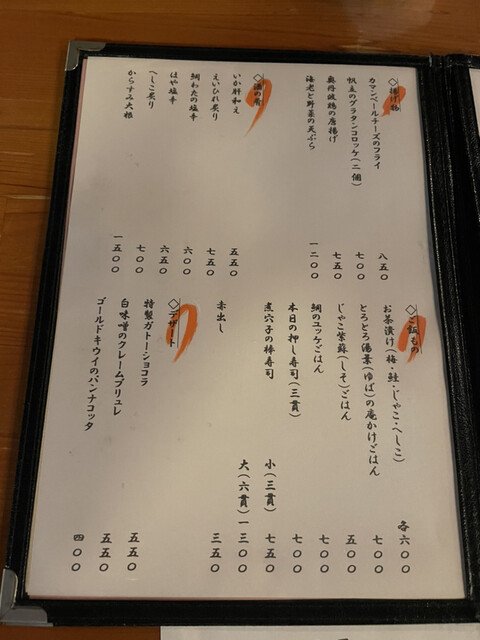 ◇揚げ物
カマンベールチーズのフライ 八五〇
帆立のグラタンコロッケ(二個) 七〇〇
奥丹波鶏の唐揚げ 七五〇
海老と野菜の天ぷら 一二〇〇
◇酒の肴
いか肝和え 五五〇
えいひれ炙り 七五〇
鯛わたの塩辛 六〇〇
はや塩辛 六五〇
へしこ炙り 七〇〇
からすみ大根 一五〇〇
◇ご飯もの
お茶漬け(梅・鮭・じゃこ・へしこ) 各六〇〇
とろとろ湯葉(ゆば)の庵かけごはん 七〇〇
じゃこ紫蘇(しそ)ごはん 五〇〇
鯛のユッケごはん 七〇〇
本日の押し寿司(三貫) 七〇〇
煮穴子の棒寿司 小(三貫) 七五〇
大(六貫) 一三〇〇
赤出し 三五〇
◇デザート
特製ガトーショコラ 五五〇
白味噌のクレームブリュレ 五五〇
ゴールドキウイのパンナコッタ 四〇〇